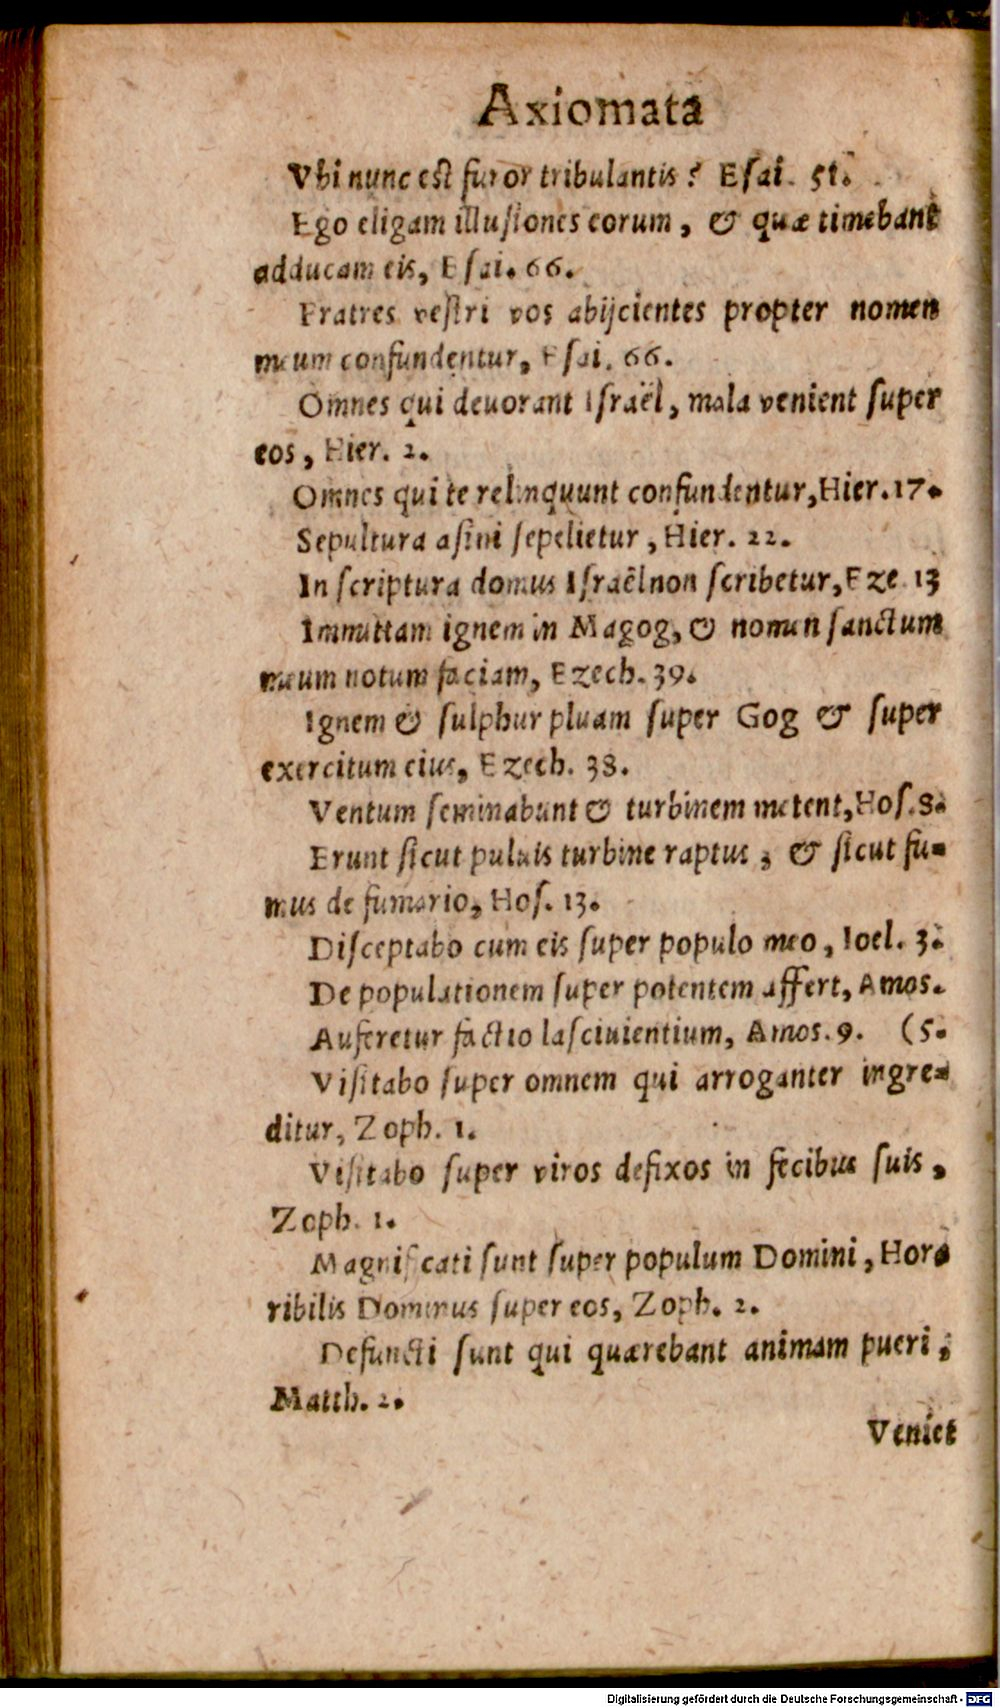 Axiomata
Vbi nunc est furor tribulantis? Esai. 51.
Ego eligam illusiones eorum, & quæ timebant
adducam eis, Esai. 66.
Fratres vestri vos abijcientes propter nomen
meum confundentur, Esai. 66.
Omnes qui deuorant Israël, mala venient super
eos, Hier. 2.
Omnes qui te relinquunt confundentur, Hier. 17.
Sepultura asini sepelietur, Hier. 22.
In scriptura domus Israël non scribetur, Eze. 13
Immittam ignem in Magog, & nomen sanctum
meum notum faciam, Ezech. 39.
Ignem & sulphur pluam super Gog & super
exercitum eius, Ezech. 38.
Ventum seminabunt & turbinem metent, Hos. 8.
Erunt sicut puluis turbine raptus, & sicut fu-
mus de fumario, Hos. 13.
Disceptabo cum eis super populo meo, Ioel. 3.
De populationem super potentem affert, Amos.
Auferetur factio lasciuientium, Amos. 9. (5.
Visitabo super omnem qui arroganter ingre-
ditur, Zoph. 1.
Visitabo super viros defixos in fecibus suis,
Zoph. 1.
Magnificati sunt super populum Domini, Hor-
ribilis Dominus super eos, Zoph. 2.
Defuncti sunt qui quærebant animam pueri,
Matth. 2.
Veniet
Digitalisierung gefördert durch die Deutsche Forschungsgemeinschaft - DFG